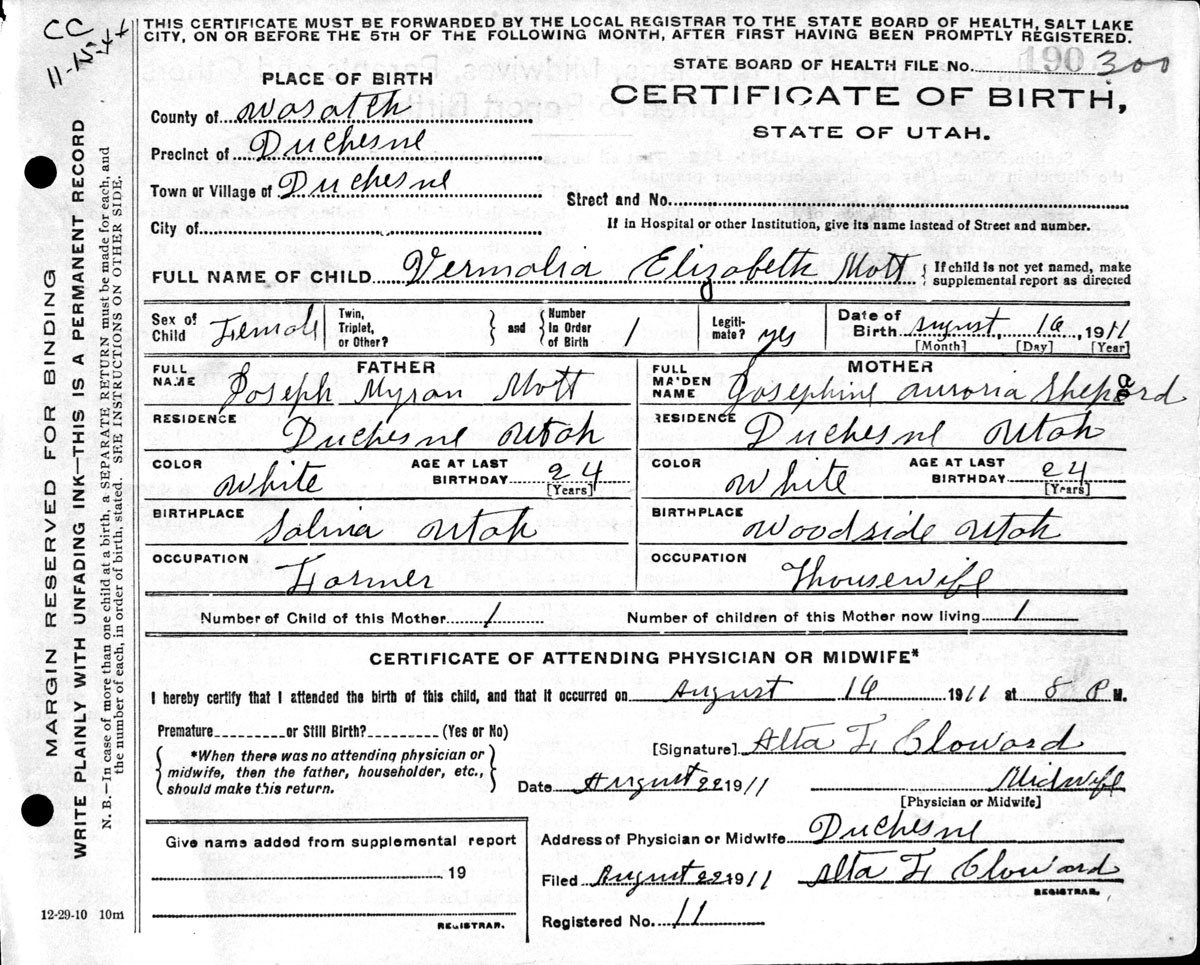 CC
11-15-44
THIS CERTIFICATE MUST BE FORWARDED BY THE LOCAL REGISTRAR TO THE STATE BOARD OF HEALTH, SALT LAKE
CITY, ON OR BEFORE THE 5TH OF THE FOLLOWING MONTH, AFTER FIRST HAVING BEEN PROMPTLY REGISTERED.
STATE BOARD OF HEALTH FILE No. 190 300
PLACE OF BIRTH
CERTIFICATE OF BIRTH,
STATE OF UTAH.
County of Wasatch
Precinct of Duchesne
Town or Village of Duchesne
Street and No.
City of
If in Hospital or other Institution, give its name instead of Street and number.
FULL NAME OF CHILD Vermalia Elizabeth Mott { If child is not yet named, make
supplemental report as directed
Sex of Child Female
Twin, Triplet, or Other? } and { Number In Order of Birth 1
Legiti-mate? yes
Date of Birth August, 16, 1911
[Month] [Day] [Year]
FATHER
FULL NAME Joseph Myran Mott
RESIDENCE Duchesne Utah
COLOR White AGE AT LAST BIRTHDAY 24 [Years]
BIRTHPLACE Salina Utah
OCCUPATION Farmer
MOTHER
FULL MAIDEN NAME Josephine auroria Shepard
RESIDENCE Duchesne Utah
COLOR White AGE AT LAST BIRTHDAY 24 [Years]
BIRTHPLACE Woodside Utah
OCCUPATION Thousewife
Number of Child of this Mother 1 Number of children of this Mother now living 1
CERTIFICATE OF ATTENDING PHYSICIAN OR MIDWIFE*
I hereby certify that I attended the birth of this child, and that it occurred on August 16 1911 at 8 P M.
Premature or Still Birth? (Yes or No)
*When there was no attending physician or
midwife, then the father, householder, etc.,
should make this return.
[Signature] Alta F Cloward
Date August 22 1911 Midwife
[Physician or Midwife]
Give name added from supplemental report
19
REGISTRAR.
Address of Physician or Midwife Duchesne
Filed August 22 1911 Alta F Cloward
REGISTRAR.
Registered No. 11
12-29-10 10m
MARGIN RESERVED FOR BINDING
WRITE PLAINLY WITH UNFADING INK—THIS IS A PERMANENT RECORD
N. B.—In case of more than one child at birth, a SEPARATE RETURN must be made for each, and
the number of each, in order of birth, stated. SEE INSTRUCTIONS ON OTHER SIDE.